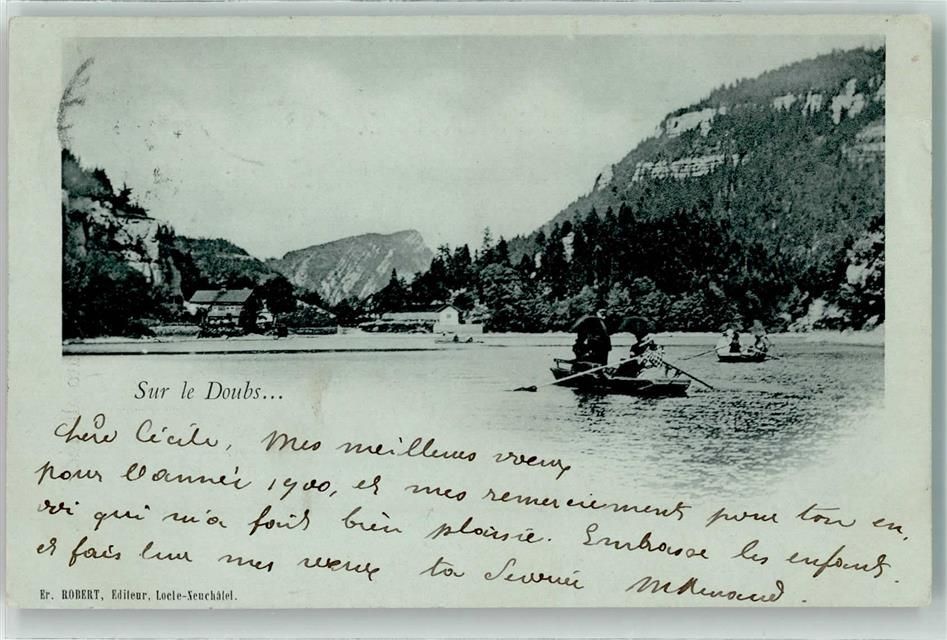 Sur le Doubs...
Chère Cécile, Mes meilleures voeux
pour l'année 1900, et mes remerciements pour ton en,
voi qui m'a fait bien plaisir. Embrasse les enfants.
et fais leur mes voeux ta M Renaud.
Er. ROBERT, Editeur, Locle-Neuchâtel.